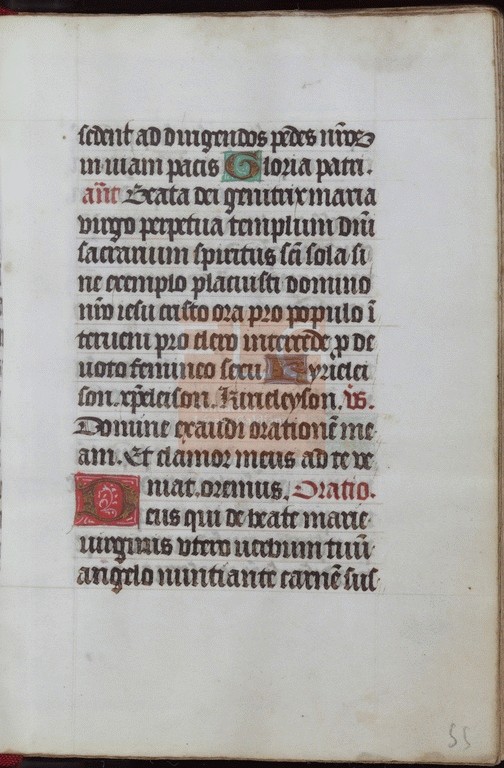 sedent ad dirigendos pedes nr̄os
in viam pacis Gloria patri.
añt Beata dei genitrix maria
virgo perpetua templum dn̄i
sacrarium spiritus sc̄i sola si
ne exemplo placuisti domino
nr̄o iesu cristo ora pro populo ī
terueni pro clero intercede p̱ de
uoto femineo sexu Kyrielei
son. xp̄eleison. Kirieleyson. v̄s.
Domine exaudi orationē me
am. Et clamor meus ad te ve
niat. oremus. Oratio.
Deus qui de beate marie
virginis vtero uerbum tuū
angelo nuntiante carnē sus
55